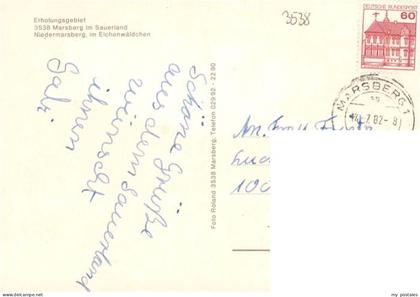 Erholungsgebiet
3538 Marsberg im Sauerland
Niedermarsberg, im Eichenwäldchen
3538
DEUTSCHE BUNDESPOST
60
MARSBERG 1
.7.82-8
Schöne Grüße
aus dem Sauerland
wünscht
ihnen
Foto Roland 3538 Marsberg, Telefon 02992 - 2290
100
My postales